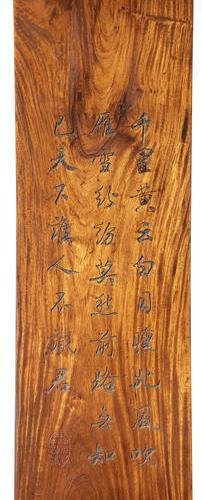 千里黄云白日曛北风吹
雁雪纷纷莫愁前路无知
己天下谁人不識君